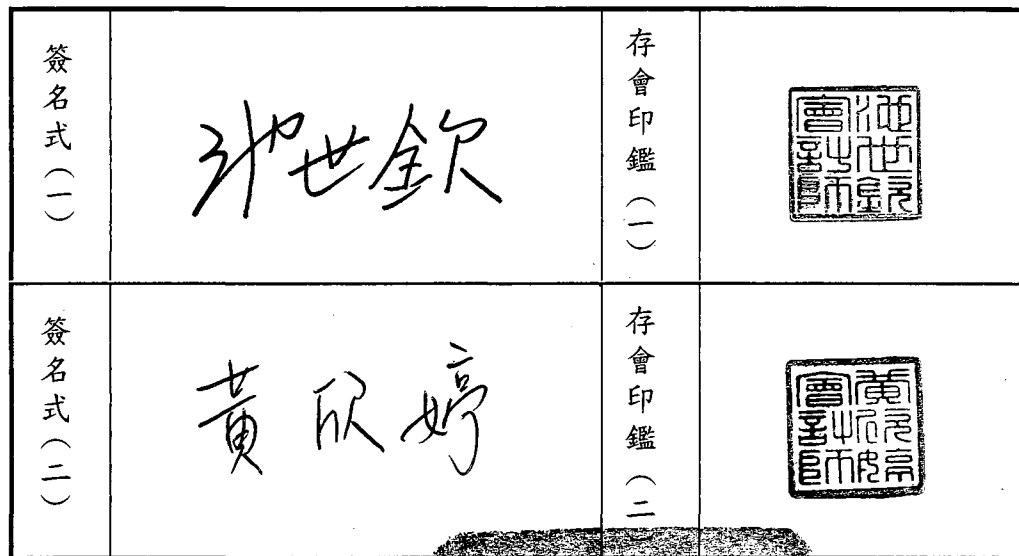 簽名式（一）
池世欽
存會印鑑（一）
池世欽
會計師
簽名式（二）
黃欣婷
存會印鑑（二
黃欣婷
會計師